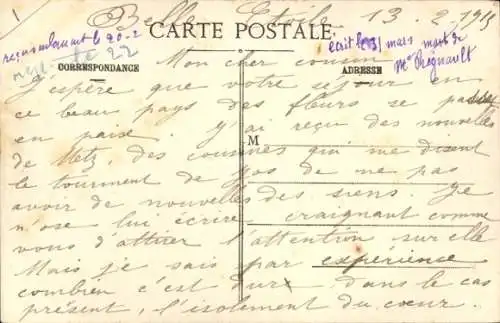 Belle Etoile 13. 2. 1915
CARTE POSTALE
reçu maintenant le 20-2
rep. le 22
écrit le 31 mars mort de
Mr Regnault
CORRESPONDANCE
ADRESSE
Mon cher cousin
J'espère que votre séjour en
ce beau pays des fleurs se passe
en paix. J'ai reçu des nouvelles
M
de Metz, des cousines qui me disent
le tourment de Jos de ne pas
avoir de nouvelles des siens. Je
n'ose lui écrire craignant comme
vous d'attirer l'attention sur elle
Mais je sais par expérience
combien c'est dur dans le cas
présent, l'isolement du cœur.